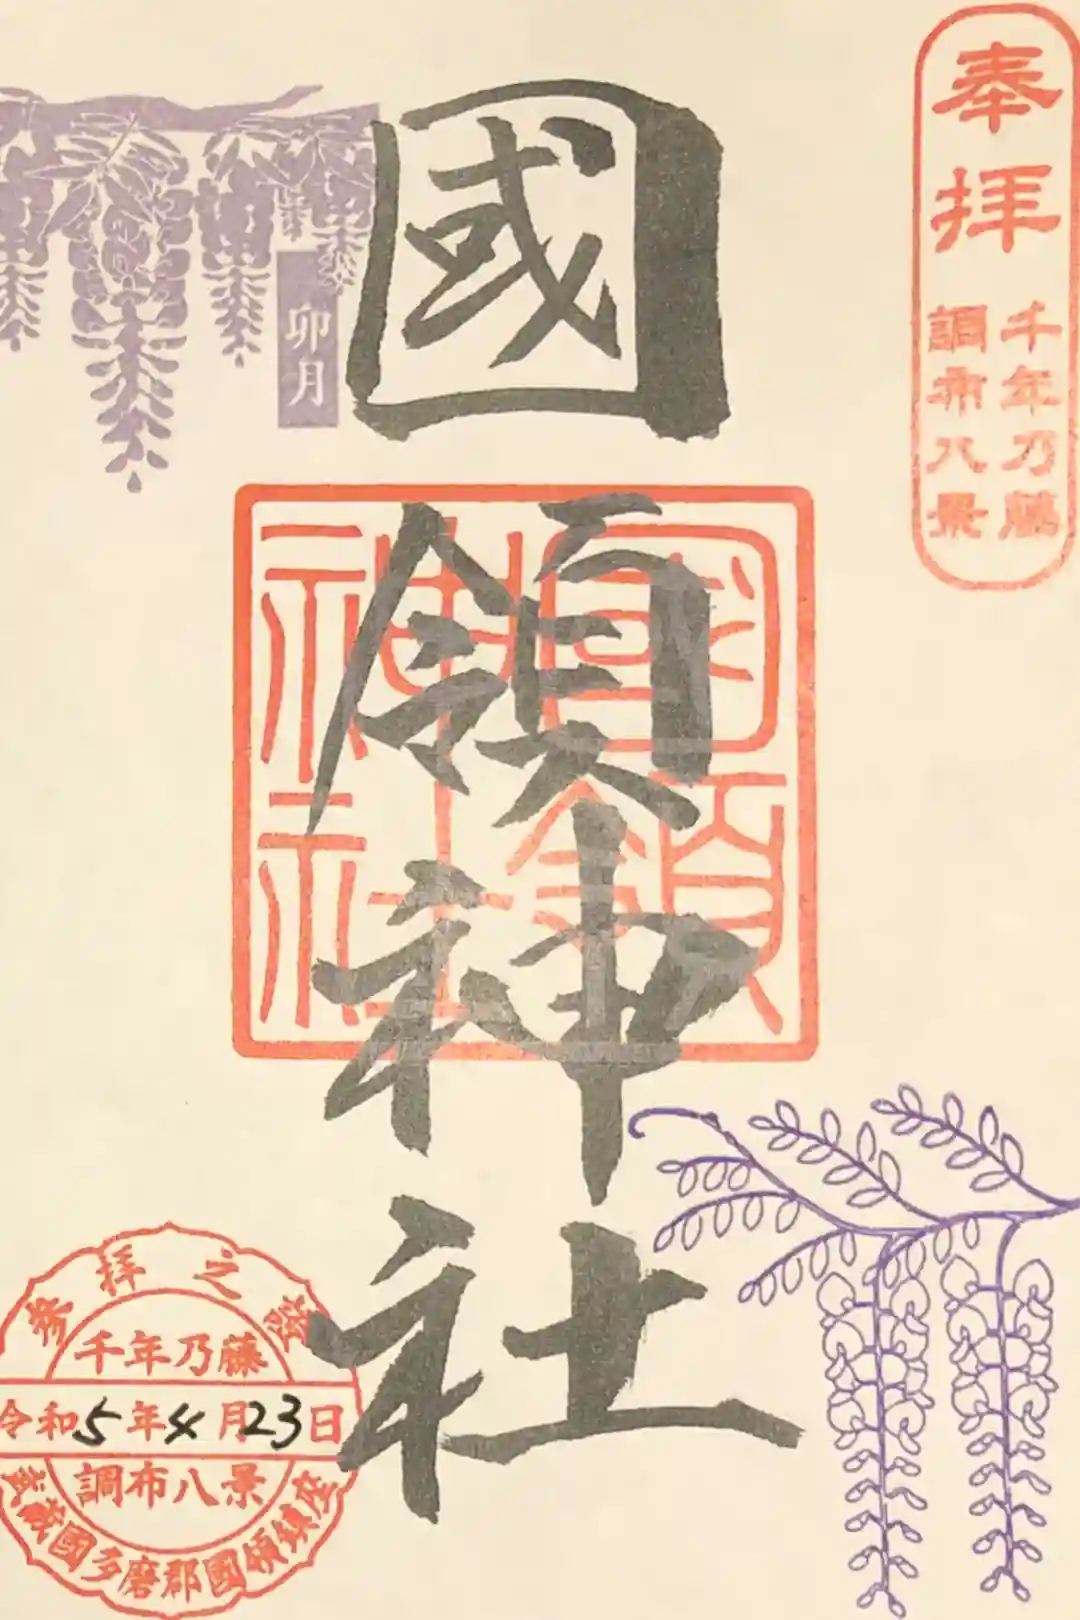 奉拝
千年乃藤
調布八景
國領神社
卯月
國領
神社
参拝之證
千年乃藤
令和5年4月23日
調布八景
武蔵國多磨郡國領鎮座